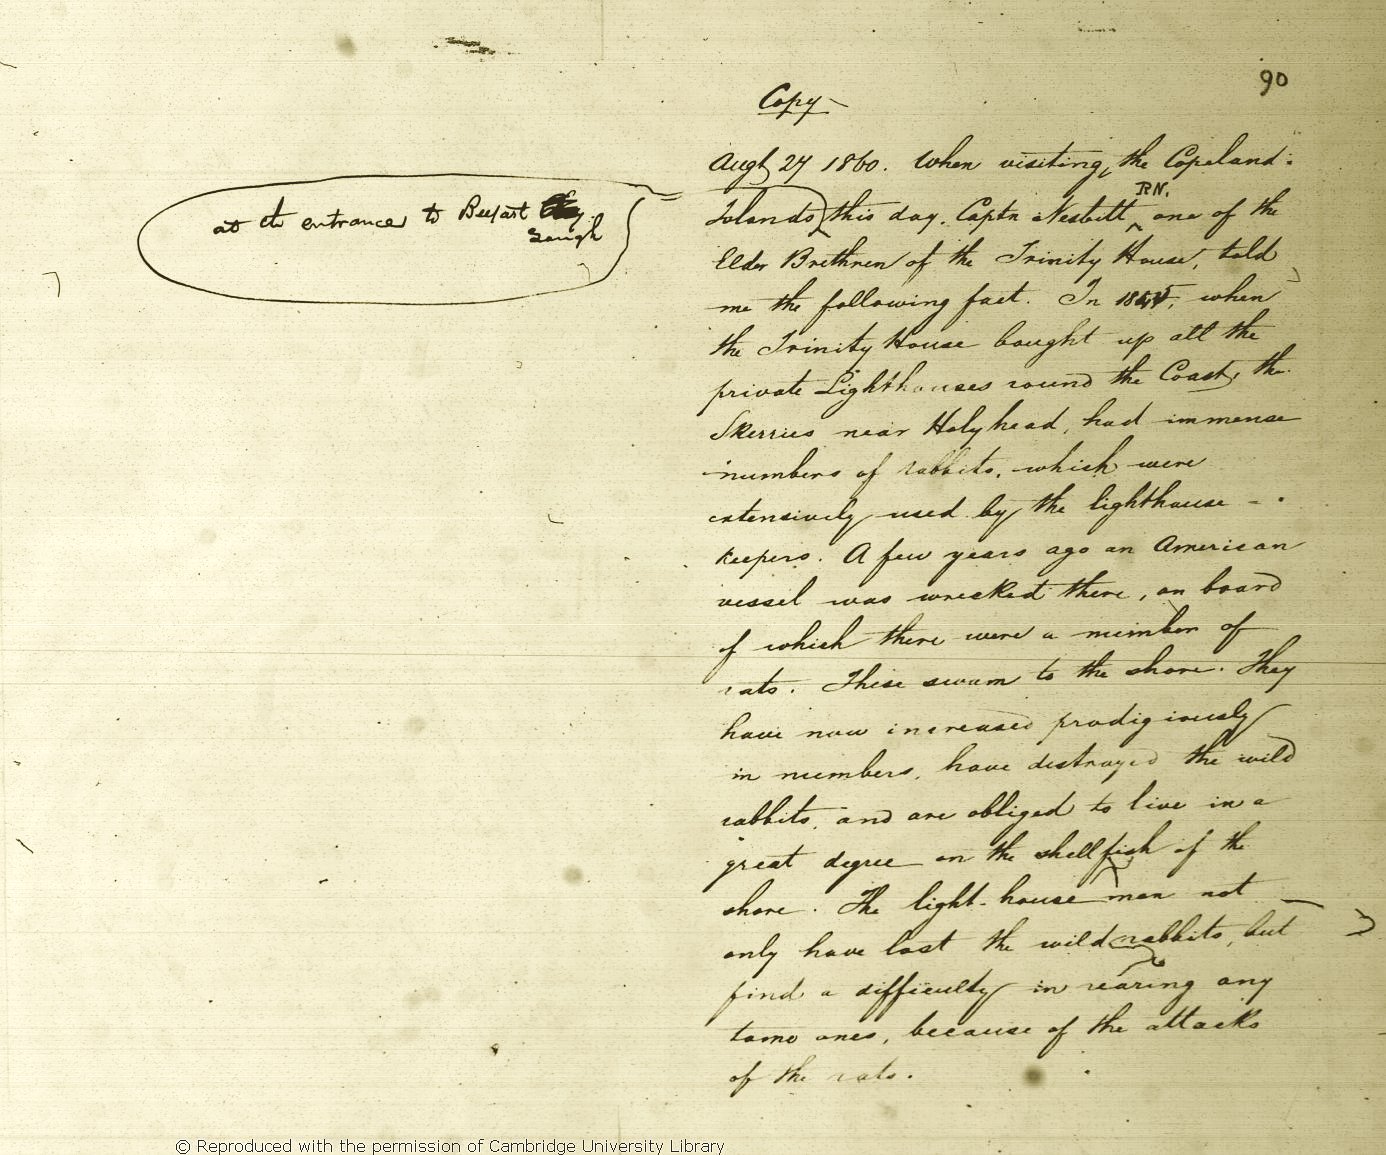 90
Copy
Augt 27 1860. When visiting the Copeland
at the entrance to Belfast
Lough
Islands this day, Captn Nesbitt R.N. one of the
Elder Brethren of the Trinity House, told
me the following fact. In when
the Trinity House bought up all the
private Lighthouses round the Coast, the
Skerries near Holyhead, had immense
numbers of rabbits, which were
extensively used by the lighthouse -
keepers. A few years ago an American
vessel was wrecked there, on board
of which there were a number of
rats. These swam to the shore. They
have now increased prodigiously
in numbers, have destroyed the wild
rabbits, and are obliged to live in a
great degree on the shell fish of the
shore. The light-house men not
only have lost the wild rabbits, but
find a difficulty in rearing any
tame ones, because of the attacks
of the rats.
© Reproduced with the permission of Cambridge University Library